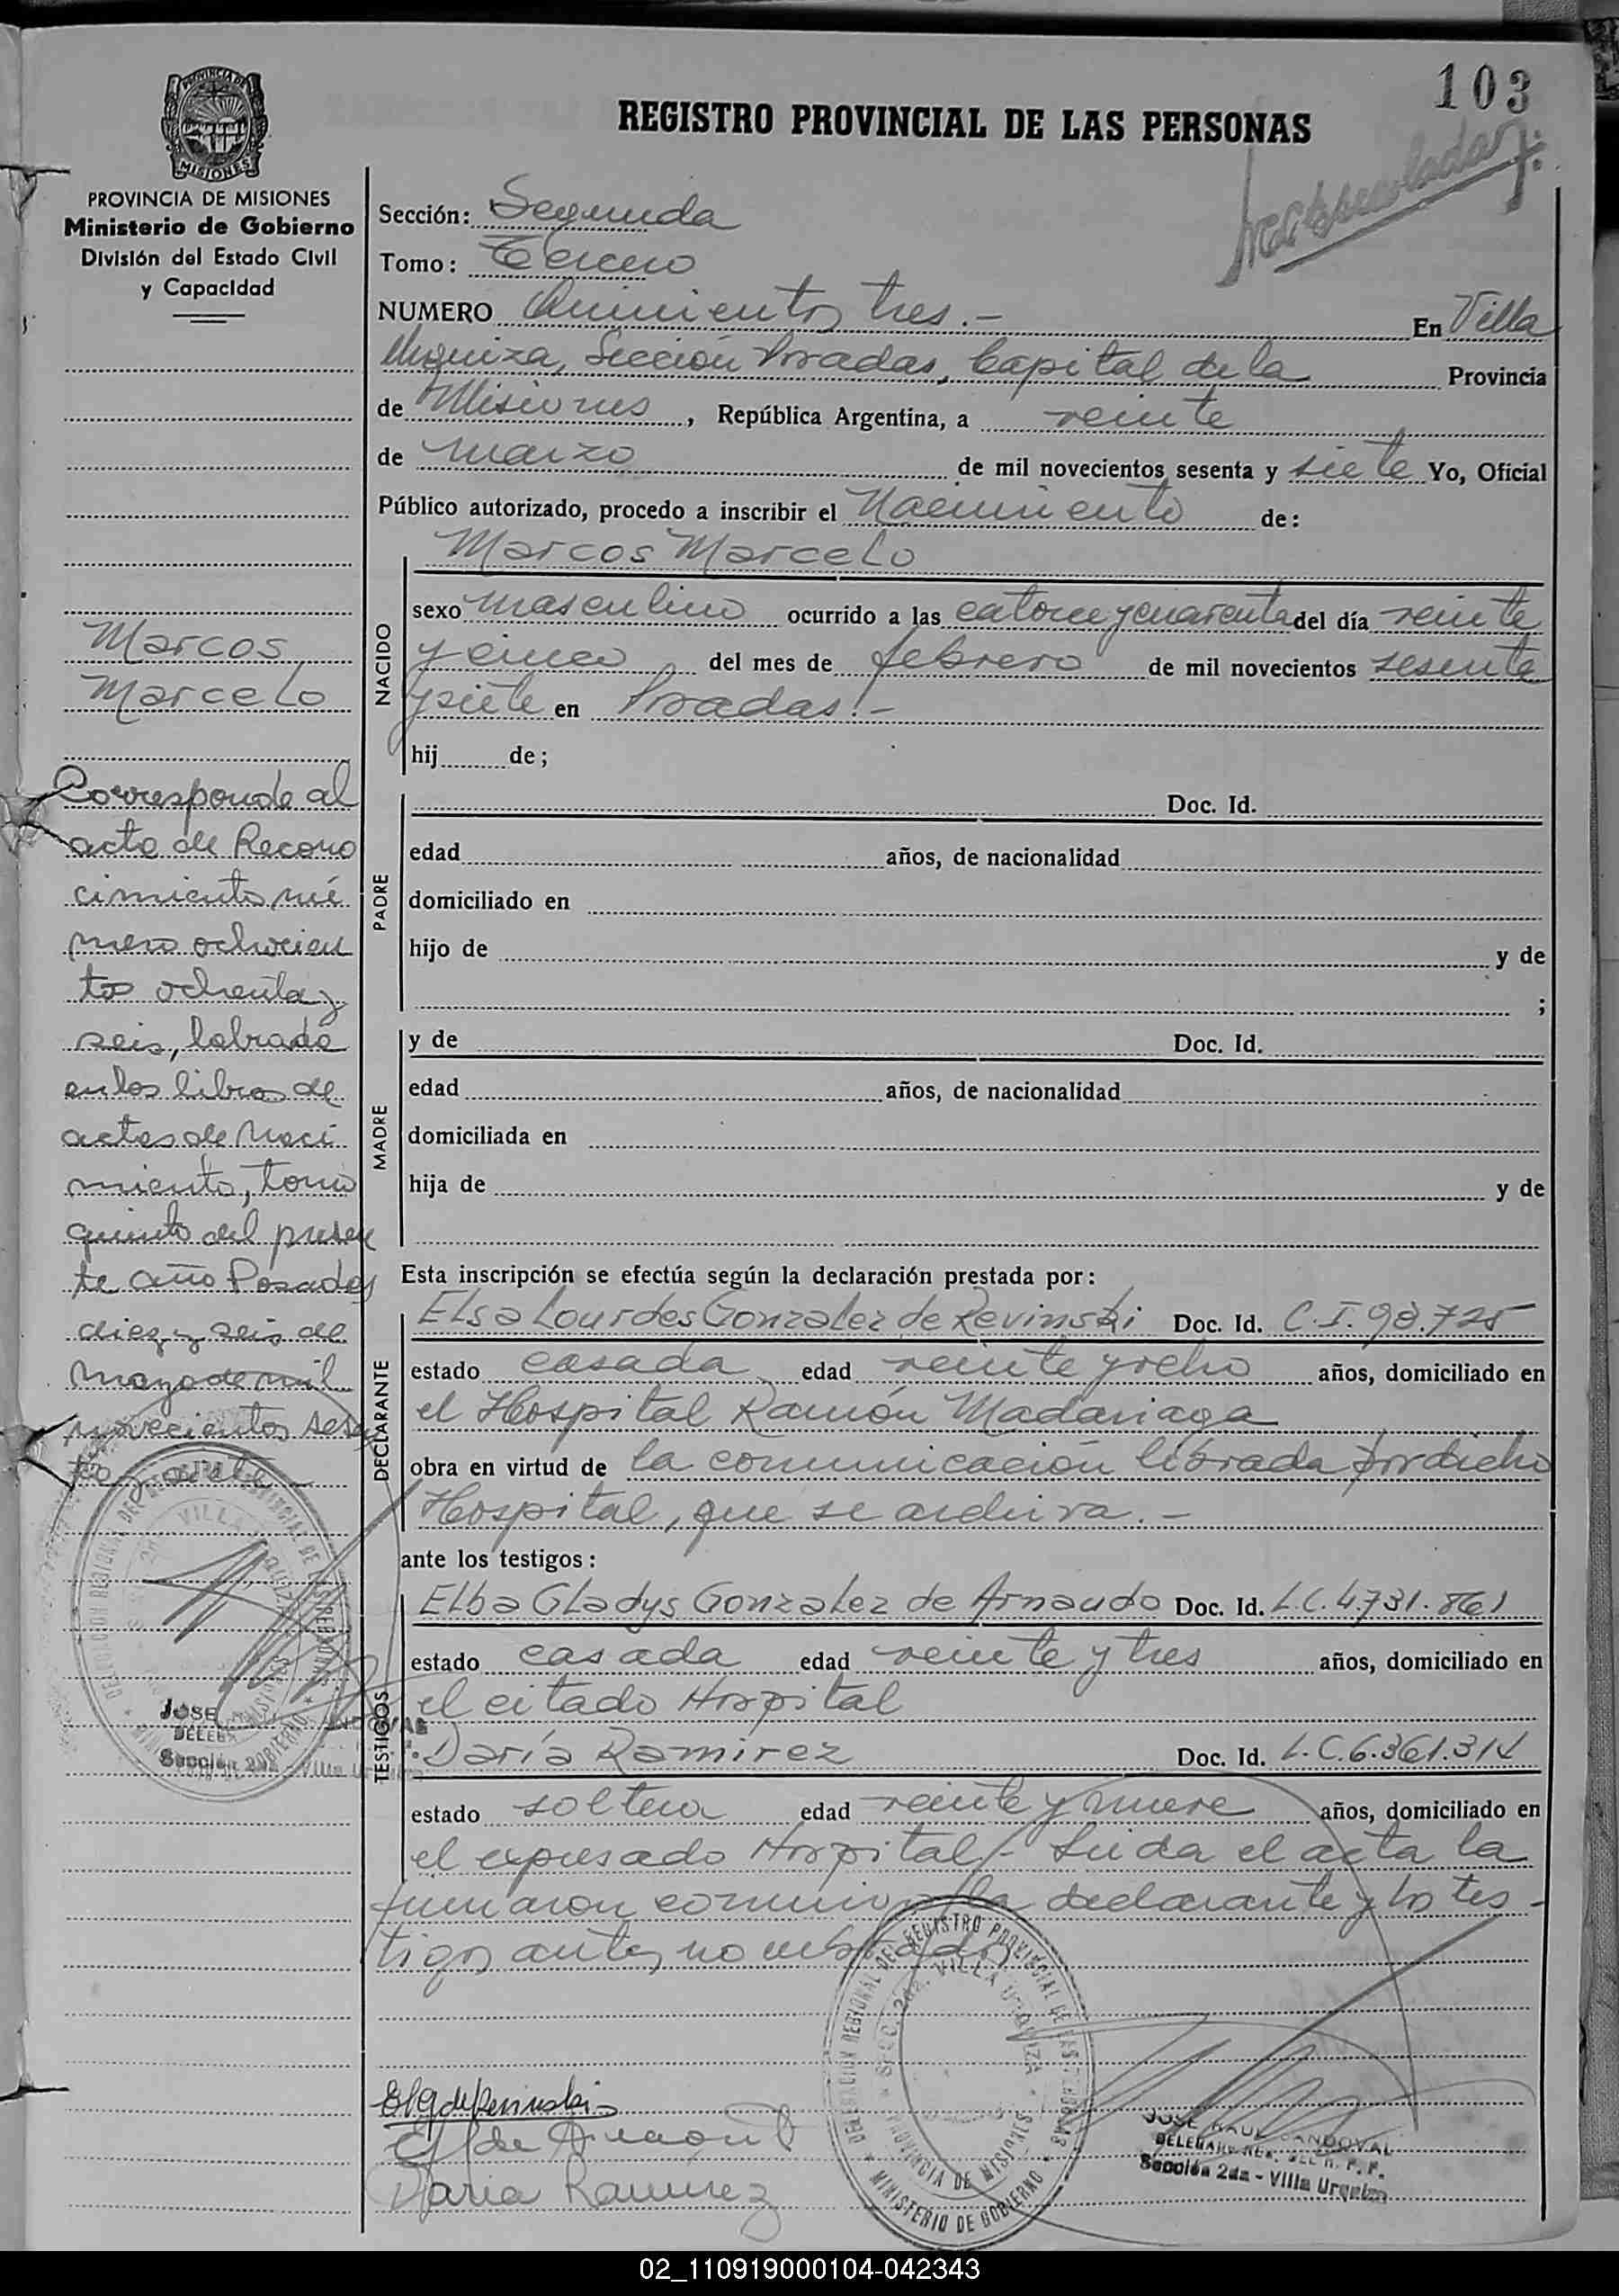 103
REGISTRO PROVINCIAL DE LAS PERSONAS
PROVINCIA DE MISIONES
PROVINCIA DE MISIONES
Ministerio de Gobierno
División del Estado Civil
y Capacidad
Sección: Segunda
Tomo: Tercero
NUMERO Quinientos tres.- En Villa
Urquiza, Sección Posadas, Capital de la Provincia
de Misiones, República Argentina, a veinte
de marzo de mil novecientos sesenta y siete Yo, Oficial
Público autorizado, procedo a inscribir el Nacimiento de:
Marcos Marcelo
NACIDO
sexo masculino ocurrido a las catorce y cuarenta del día veinte
y cinco del mes de febrero de mil novecientos sesenta
y siete en Posadas.-
hij de;
PADRE
Doc. Id.
edad años, de nacionalidad
domiciliado en
hijo de y de
;
MADRE
y de Doc. Id.
edad años, de nacionalidad
domiciliada en
hija de y de
Esta inscripción se efectúa según la declaración prestada por:
DECLARANTE
Elsa Lourdes Gonzalez de Revinski Doc. Id. C.I. 98.725
estado casada edad veinte y ocho años, domiciliado en
el Hospital Ramón Madariaga
obra en virtud de la comunicación librada por dicho
Hospital, que se archiva.-
ante los testigos:
TESTIGOS
Elba Gladys Gonzalez de Arnaudo Doc. Id. L.C. 4.731.861
estado casada edad veinte y tres años, domiciliado en
el citado Hospital
Daría Ramirez Doc. Id. L.C. 6.361.314
estado soltera edad veinte y nueve años, domiciliado en
el expresado Hospital.- Leida el acta la
firmaron conmigo la declarante y los tes-
tigos antes nombrados
Marcos
Marcelo
Corresponde al
acta de Recono
cimiento nú
mero ochocien
tos ochenta y
seis, labrada
en los libros de
actas de Naci
miento, tomo
quinto del presen
te año Posadas
diez y seis de
Mayo de mil
novecientos sesen
ta y siete
DELEGACION REGIONAL DEL REGISTRO PROVINCIAL DE LAS PERSONAS
SECC. 2da. VILLA URQUIZA
PROVINCIA DE MISIONES
MINISTERIO DE GOBIERNO
JOSE
Sección 2da - Villa
Daria Ramirez
JOSE RAUL SANDOVAL
Sección 2da - Villa Urquiza
02_110919000104-042343